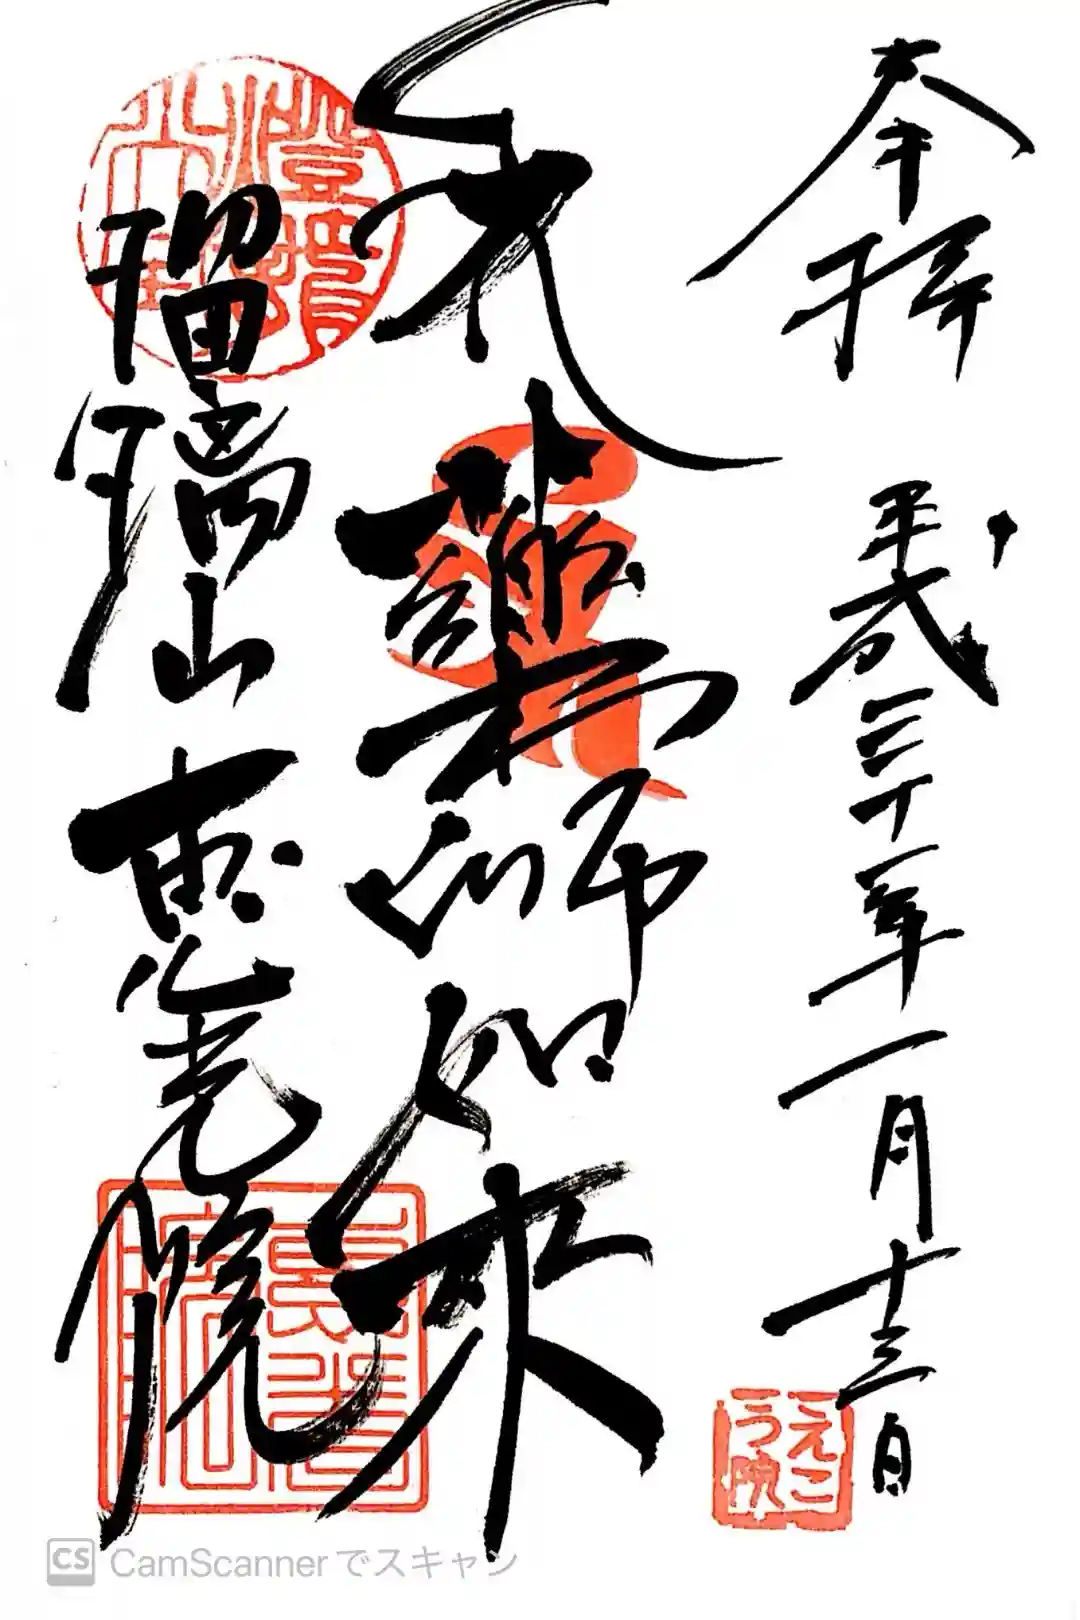 奉拝
平成三十年一月十三日
薬師如来
瑠璃山恵光院
えこう院
CS CamScannerでスキャン